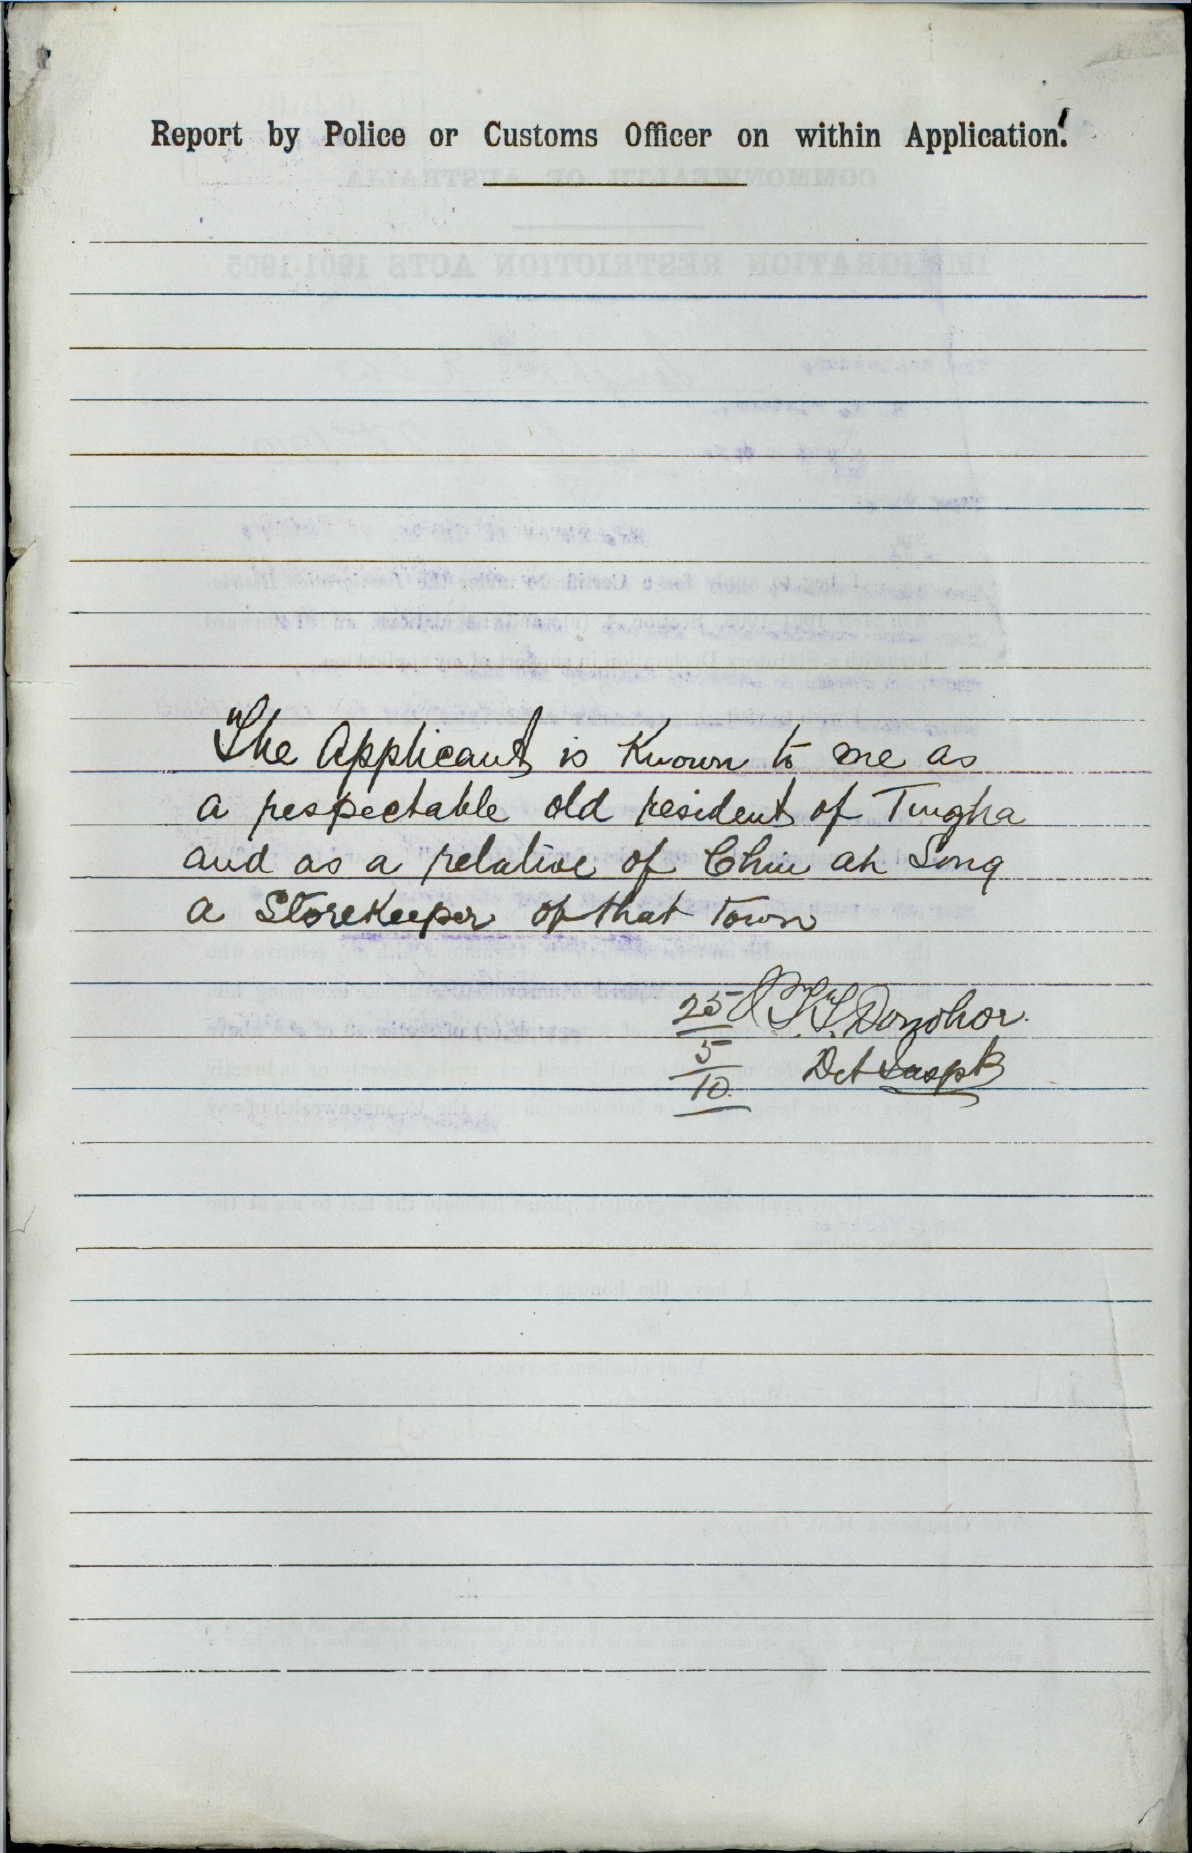 Report by Police or Customs Officer on within Application.
The Applicant is Known to me as
a respectable old resident of Tingha
and as a relative of Chiu ah Song
a Storekeeper of that town
25
5
10
Donohoe
Det Inspt